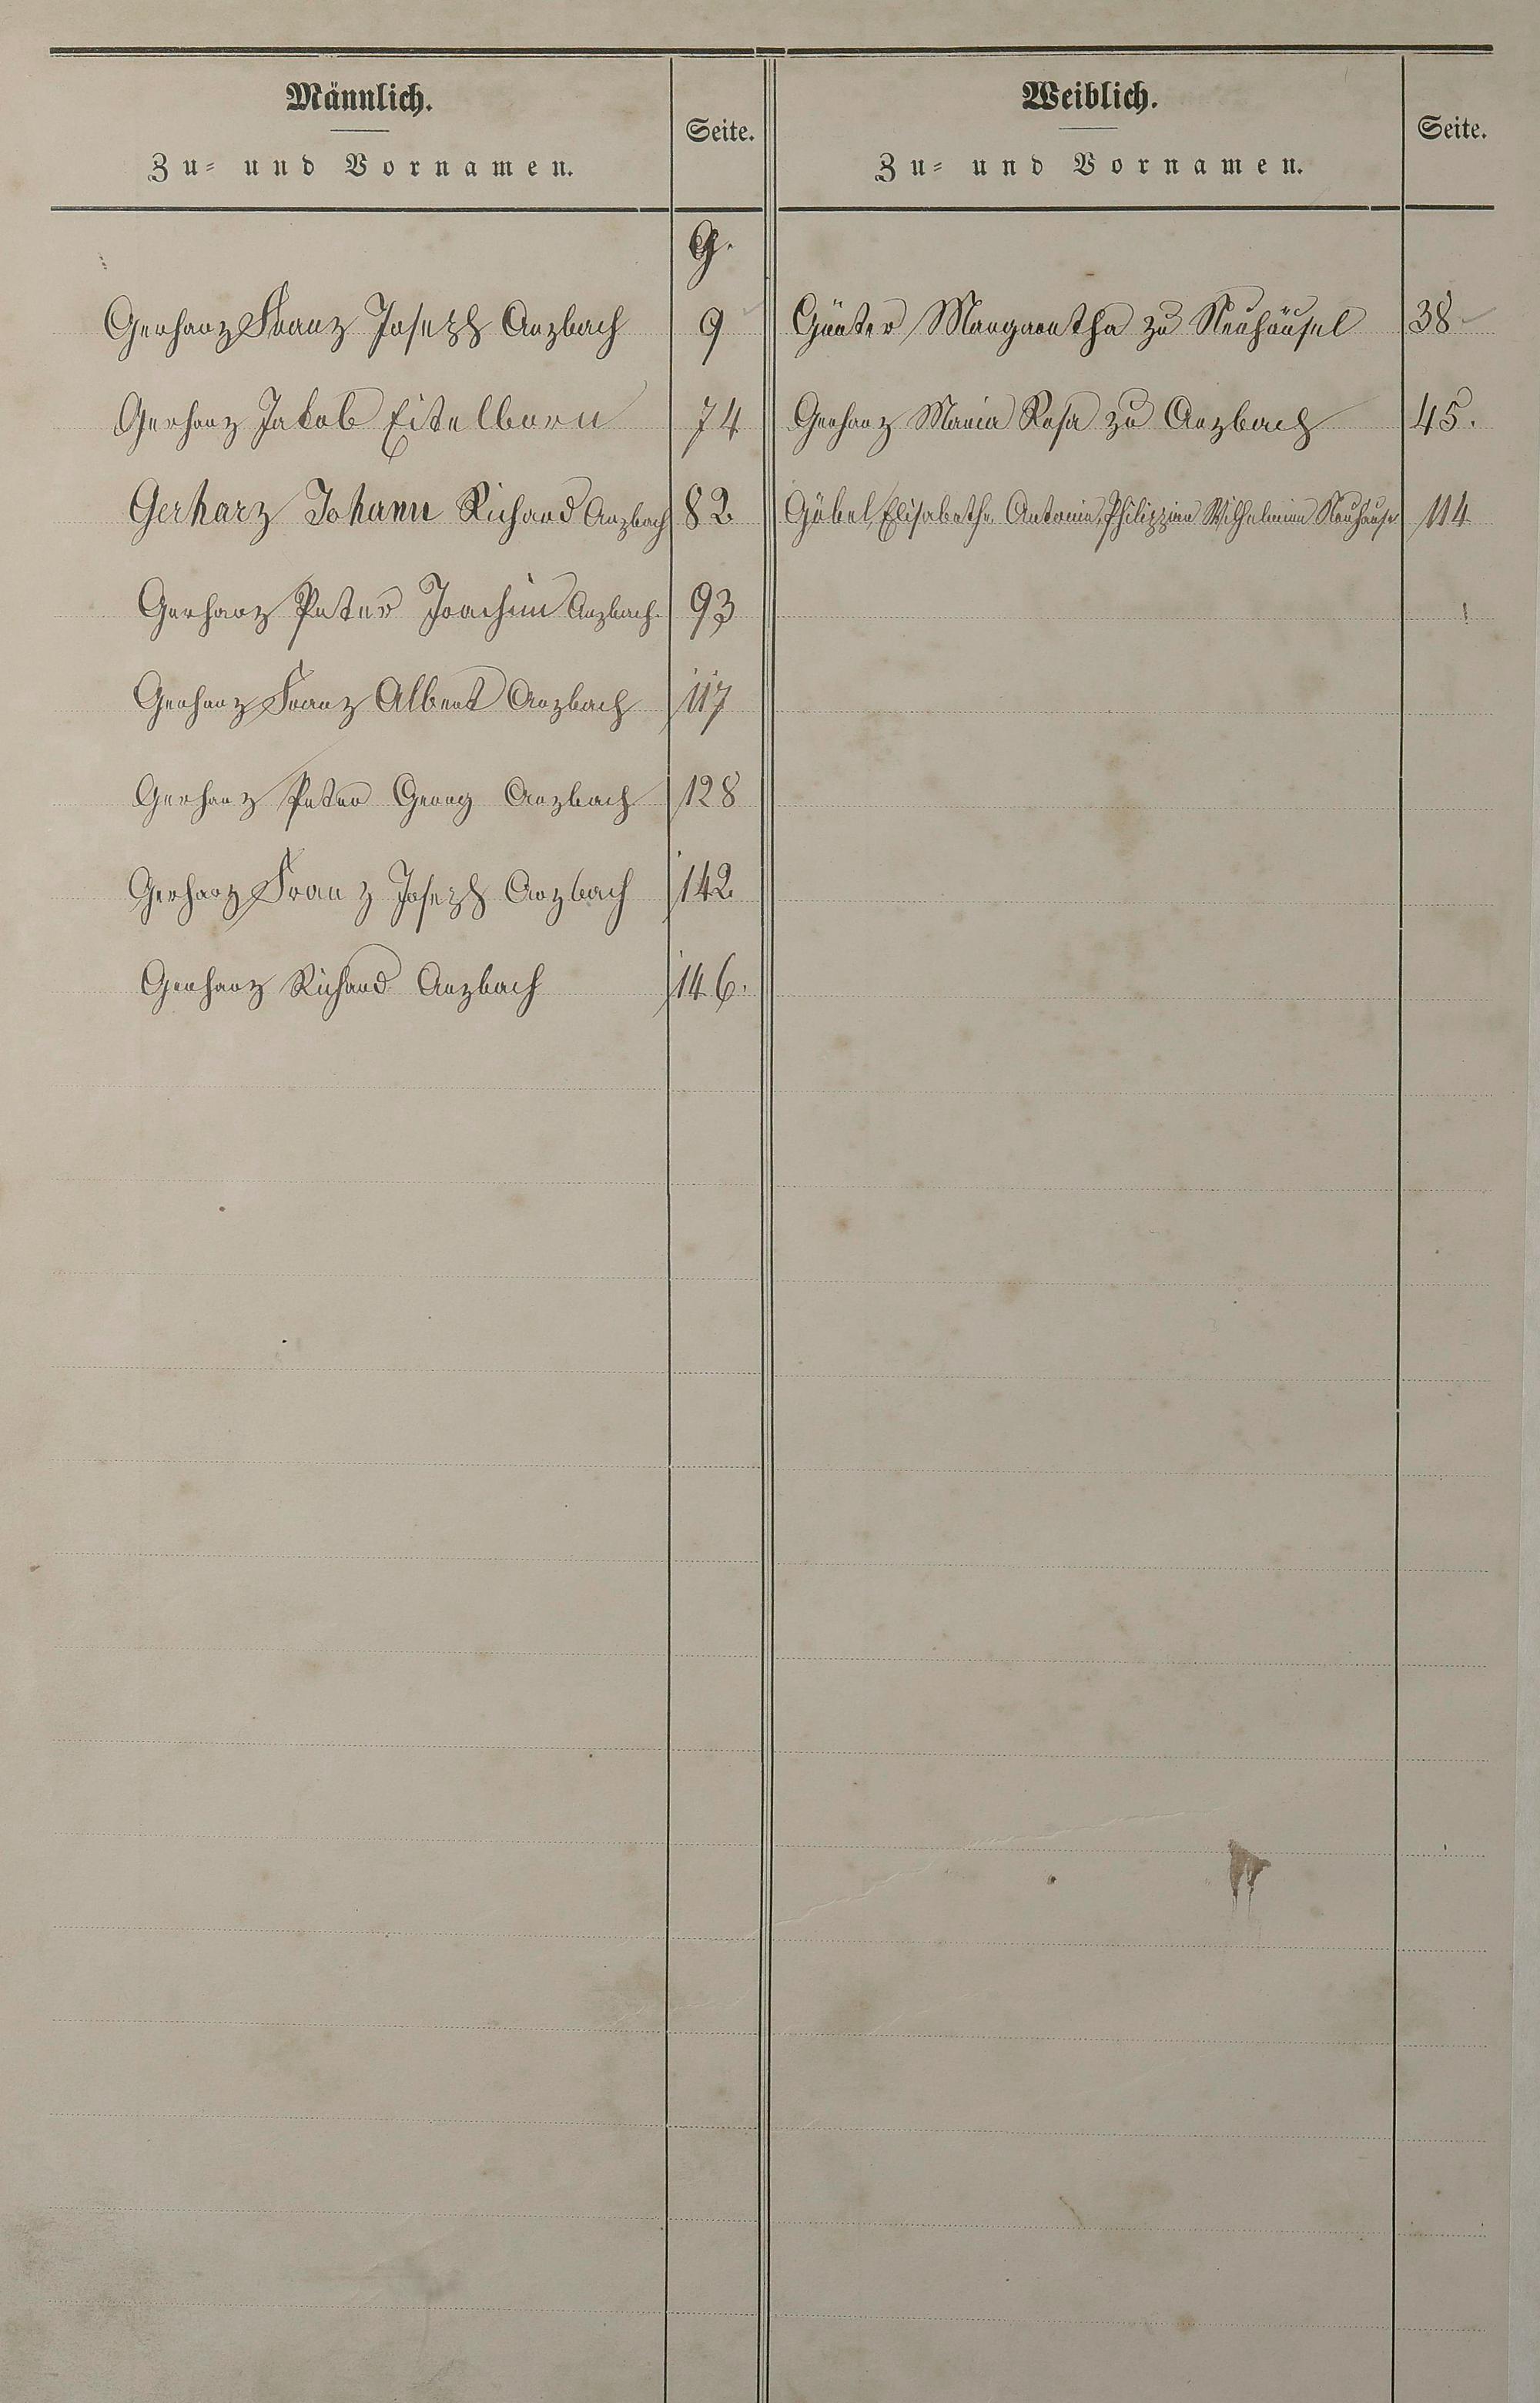 Männlich.
Zu- und Vornamen.
Seite.
Weiblich.
Zu- und Vornamen.
Seite.
G.
Gerharz Franz Joseph Arzbach 9
Gerharz Jakob Eitelborn 74
Gerharz Johann Richard Arzbach 82
Gerharz Peter Joachim Arzbach. 93
Gerharz Franz Albert Arzbach 117
Gerharz Peter Georg Arzbach 128
Gerharz Franz Joseph Arzbach 142
Gerharz Richard Arzbach 146.
Margaretha zu Neuhäusel 38
Gerharz Maria Rosa zu Arzbach 45.
Göbel Elisabethe Antonie, Philippine Wilhelmine Neuhäusel 114